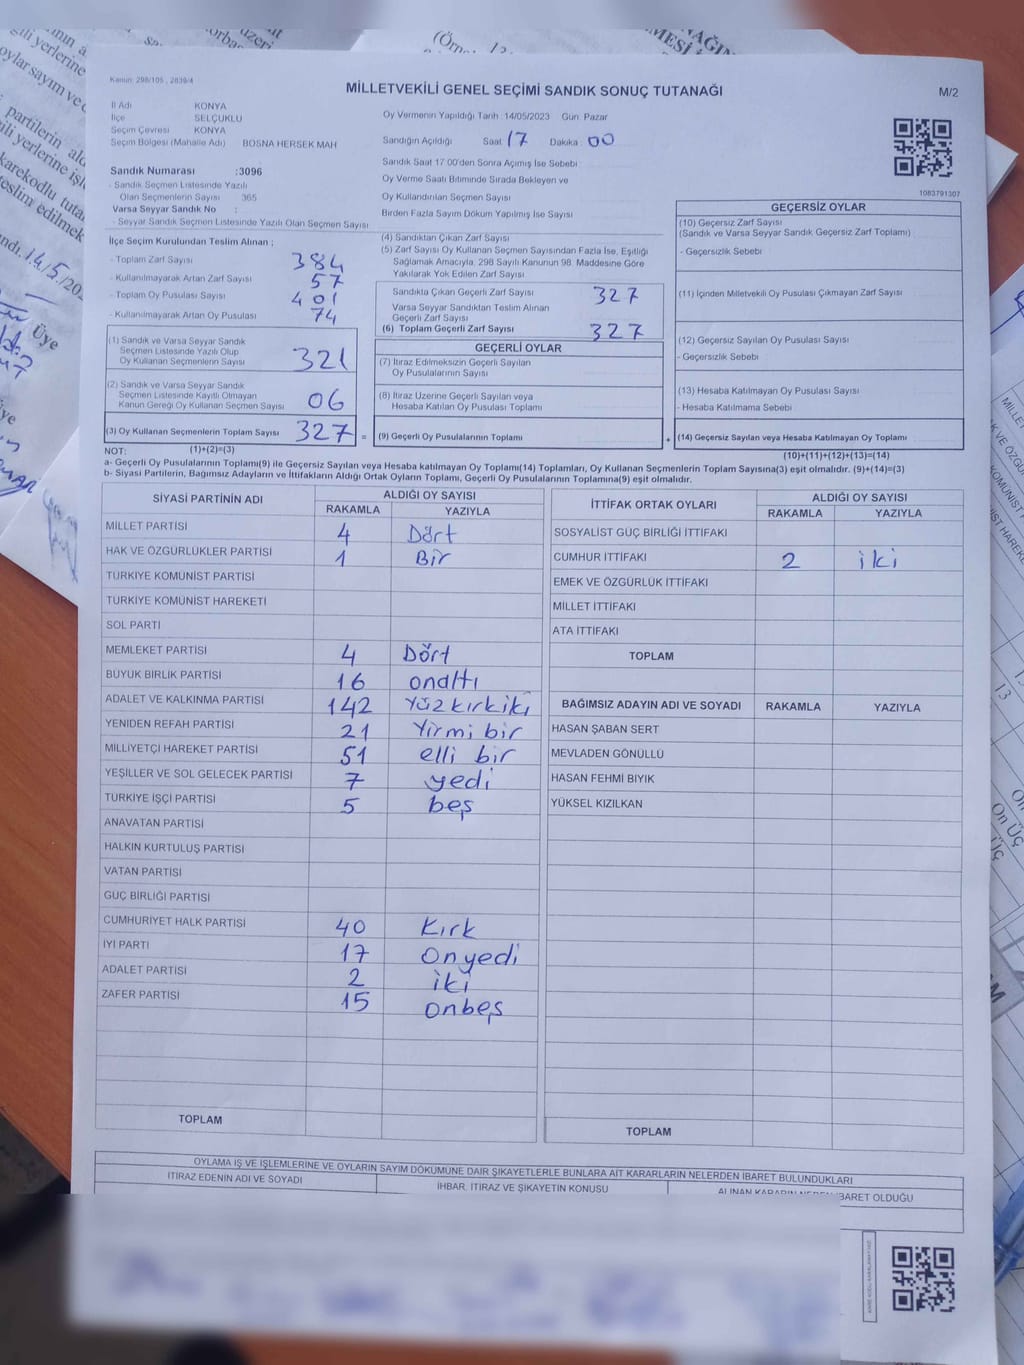 Kanun: 298/105 , 2839/4
MİLLETVEKİLİ GENEL SEÇİMİ SANDIK SONUÇ TUTANAĞI
M/2
İl Adı KONYA
İlçe SELÇUKLU
Seçim Çevresi KONYA
Seçim Bölgesi (Mahalle Adı) BOSNA HERSEK MAH
Oy Vermenin Yapıldığı Tarih : 14/05/2023 Gün: Pazar
Sandığın Açıldığı Saat 17 Dakika 00
Sandık Saat 17:00'den Sonra Açımış İse Sebebi
Oy Verme Saati Bitiminde Sırada Bekleyen ve
Oy Kullandırılan Seçmen Sayısı
Birden Fazla Sayım Döküm Yapılmış İse Sayısı
1083791307
Sandık Numarası :3096
- Sandık Seçmen Listesinde Yazılı
Olan Seçmenlerin Sayısı 365
Varsa Seyyar Sandık No :
- Seyyar Sandık Seçmen Listesinde Yazılı Olan Seçmen Sayısı
İlçe Seçim Kurulundan Teslim Alınan ;
- Toplam Zarf Sayısı 384
- Kullanılmayarak Artan Zarf Sayısı 57
- Toplam Oy Pusulası Sayısı 401
- Kullanılmayarak Artan Oy Pusulası 74
(1) Sandık ve Varsa Seyyar Sandık
Seçmen Listesinde Yazılı Olup
Oy Kullanan Seçmenlerin Sayısı 321
(2) Sandık ve Varsa Seyyar Sandık
Seçmen Listesinde Kayıtlı Olmayan
Kanun Gereği Oy Kullanan Seçmen Sayısı 06
(3) Oy Kullanan Seçmenlerin Toplam Sayısı 327 =
(4) Sandıktan Çıkan Zarf Sayısı
(5) Zarf Sayısı Oy Kullanan Seçmen Sayısından Fazla İse, Eşitliği
Sağlamak Amacıyla, 298 Sayılı Kanunun 98. Maddesine Göre
Yakılarak Yok Edilen Zarf Sayısı
Sandıkta Çıkan Geçerli Zarf Sayısı 327
Varsa Seyyar Sandıktan Teslim Alınan
Geçerli Zarf Sayısı
(6) Toplam Geçerli Zarf Sayısı 327
GEÇERLİ OYLAR
(7) İtiraz Edilmeksizin Geçerli Sayılan
Oy Pusulalarının Sayısı
(8) İtiraz Üzerine Geçerli Sayılan veya
Hesaba Katılan Oy Pusulası Toplamı
(9) Geçerli Oy Pusulalarının Toplamı +
GEÇERSİZ OYLAR
(10) Geçersiz Zarf Sayısı
(Sandık ve Varsa Seyyar Sandık Geçersiz Zarf Toplamı)
- Geçersizlik Sebebi
(11) İçinden Milletvekili Oy Pusulası Çıkmayan Zarf Sayısı
(12) Geçersiz Sayılan Oy Pusulası Sayısı
- Geçersizlik Sebebi
(13) Hesaba Katılmayan Oy Pusulası Sayısı
- Hesaba Katılmama Sebebi
(14) Geçersiz Sayılan veya Hesaba Katılmayan Oy Toplamı
NOT: (1)+(2)=(3) (10)+(11)+(12)+(13)=(14)
a- Geçerli Oy Pusulalarının Toplamı(9) ile Geçersiz Sayılan veya Hesaba katılmayan Oy Toplamı(14) Toplamları, Oy Kullanan Seçmenlerin Toplam Sayısına(3) eşit olmalıdır. (9)+(14)=(3)
b- Siyasi Partilerin, Bağımsız Adayların ve İttifakların Aldığı Ortak Oyların Toplamı, Geçerli Oy Pusulalarının Toplamına(9) eşit olmalıdır.
SİYASİ PARTİNİN ADI ALDIĞI OY SAYISI
RAKAMLA YAZIYLA
MİLLET PARTİSİ 4 Dört
HAK VE ÖZGÜRLÜKLER PARTİSİ 1 Bir
TÜRKİYE KOMÜNİST PARTİSİ
TÜRKİYE KOMÜNİST HAREKETİ
SOL PARTİ
MEMLEKET PARTİSİ 4 Dört
BÜYÜK BİRLİK PARTİSİ 16 onaltı
ADALET VE KALKINMA PARTİSİ 142 Yüzkırkiki
YENİDEN REFAH PARTİSİ 21 Yirmi bir
MİLLİYETÇİ HAREKET PARTİSİ 51 elli bir
YEŞİLLER VE SOL GELECEK PARTİSİ 7 yedi
TÜRKİYE İŞÇİ PARTİSİ 5 beş
ANAVATAN PARTİSİ
HALKIN KURTULUŞ PARTİSİ
VATAN PARTİSİ
GÜÇ BİRLİĞİ PARTİSİ
CUMHURİYET HALK PARTİSİ 40 Kırk
İYİ PARTİ 17 Onyedi
ADALET PARTİSİ 2 iki
ZAFER PARTİSİ 15 onbeş
TOPLAM
İTTİFAK ORTAK OYLARI ALDIĞI OY SAYISI
RAKAMLA YAZIYLA
SOSYALİST GÜÇ BİRLİĞİ İTTİFAKI
CUMHUR İTTİFAKI 2 iki
EMEK VE ÖZGÜRLÜK İTTİFAKI
MİLLET İTTİFAKI
ATA İTTİFAKI
TOPLAM
BAĞIMSIZ ADAYIN ADI VE SOYADI RAKAMLA YAZIYLA
HASAN ŞABAN SERT
MEVLADEN GÖNÜLLÜ
HASAN FEHMİ BIYIK
YÜKSEL KIZILKAN
TOPLAM
OYLAMA İŞ VE İŞLEMLERİNE VE OYLARIN SAYIM DÖKÜMÜNE DAİR ŞİKAYETLERLE BUNLARA AİT KARARLARIN NELERDEN İBARET BULUNDUKLARI
İTİRAZ EDENİN ADI VE SOYADI İHBAR, İTİRAZ VE ŞİKAYETİN KONUSU ALINAN KARARIN NEDEN İBARET OLDUĞU